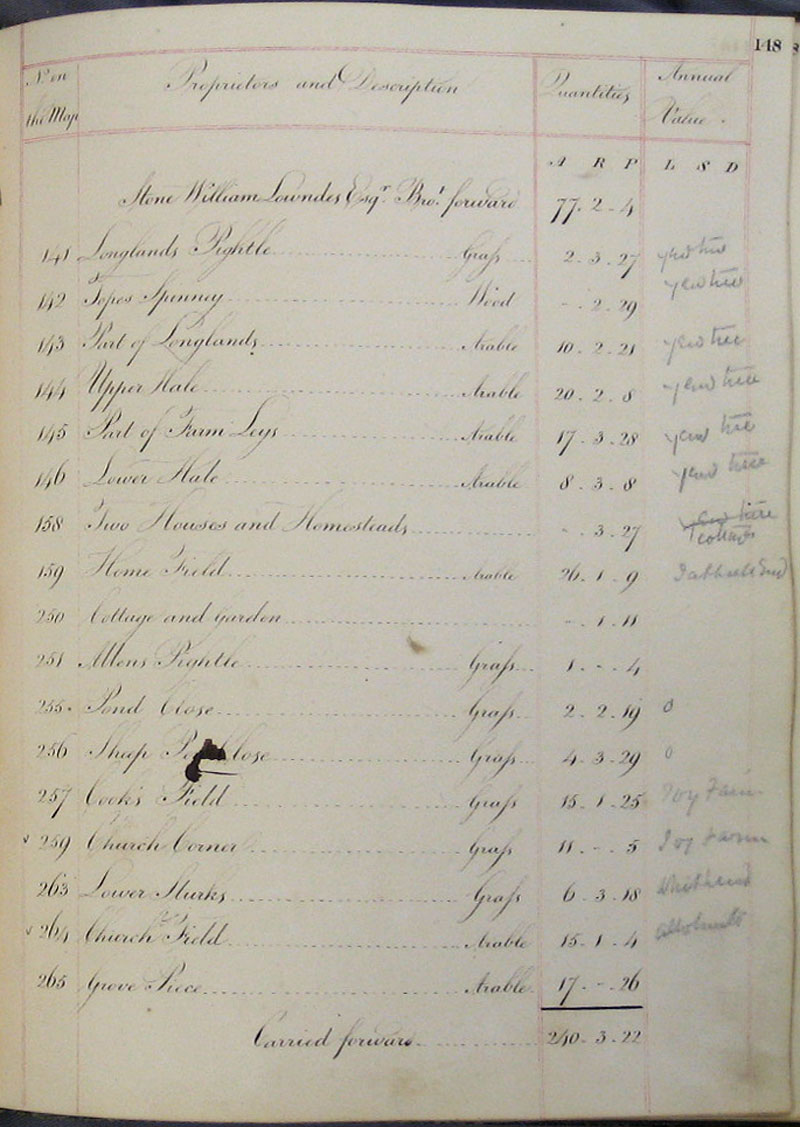 148
No. on the Map Proprietors and Description Quantities Annual Value.
A R P L S D
Stone William Lowndes Esqr. Brot. forward 77. 2. 4
141 Longlands Pightle Grass 2. 3. 27 yew tree
142 Topes Spinney Wood -. 2. 29 yew tree
143 Part of Longlands Arable 10. 2. 21 yew tree
144 Upper Hale Arable 20. 2. 8 yew tree
145 Part of Farm Leys Arable 17. 3. 28 yew tree
146 Lower Hale Arable 8. 3. 8 yew tree
158 Two Houses and Homesteads -. 3. 27 yew tree
159 Home Field Arable 26. 1. 9
250 Cottage and Garden -. 1. 11
251 Allens Pightle Grass 1. -. 4
255. Pond Close Grass 2. 2. 19 0
256 Sheep Close Grass 4. 3. 29 0
257 Cook's Field Grass 15. 1. 25
v 259 Church Corner Grass 11. -. 5
263 Lower Sturks Grass 6. 3. 18
v 264 Church Field Arable 15. 1. 4 allotments
265 Grove Piece Arable 17. -. 26
Carried forward 240. 3. 22